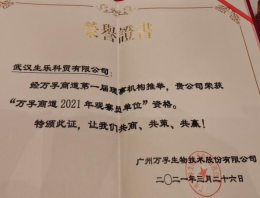 荣誉證書
武汉生乐科贸有限公司：
经万孚商道第一届理事机构推举，贵公司荣获
“万孚商道2021年观察员单位”资格。
特颁此证，让我们共商、共策、共赢！
广州万孚生物技术股份有限公司
二〇二一年三月二十六日